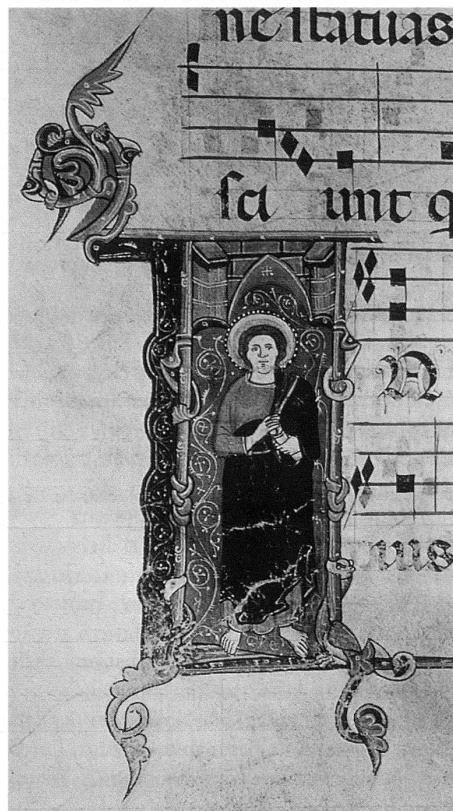 ne ſtatuas
ſci unt q
N
nus